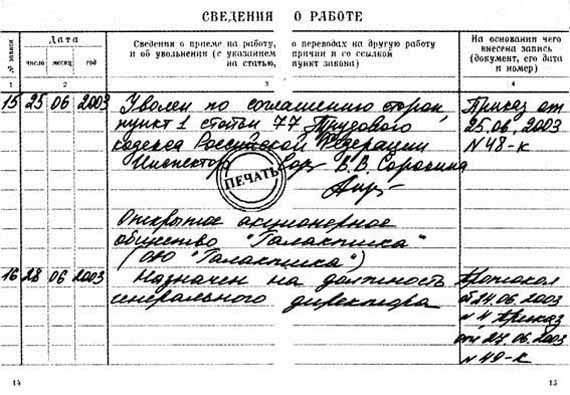 СВЕДЕНИЯ О РАБОТЕ
№ записи
Дата
число месяц год
Сведения о приеме на работу, о переводах на другую работу
и об увольнении (с указанием причин и со ссылкой
на статью, пункт закона)
На основании чего
внесена запись
(документ, его дата
и номер)
1 2 3 4
15 25 06 2003 Уволен по соглашению сторон,
пункт 1 статьи 77 Трудового
кодекса Российской Федерации
Инспектор В.В. Сорокина
ПЕЧАТЬ
Приказ от
25.06.2003
N 48-к
Открытое акционерное
общество "Галактика"
(ОАО "Галактика")
16 28 06 2003 Назначен на должность
генерального директора
Протокол
от 24.06.2003
N 4, Приказ
от 27.06.2003
N 49-к
14 15